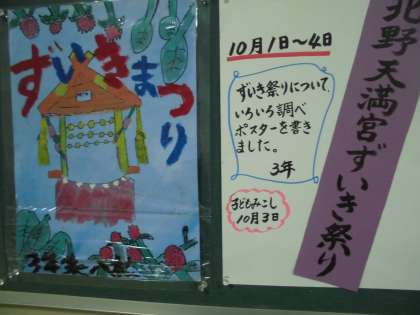 ずいきまつり
北野天満宮ずいき祭り
10月1日～4日
ずいき祭りについて
いろいろ調べ
ポスターを書き
ました。
3年
子どもみこし
10月3日